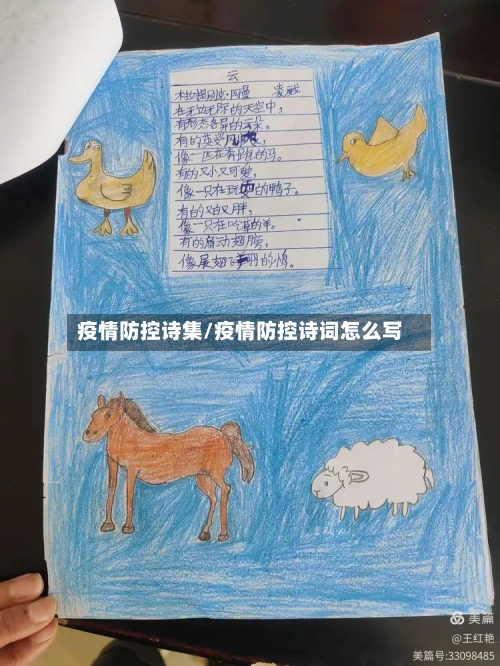 云
凌戬
在无边无际的天空中，
有形态各异的云朵。
像一匹在奔跑的马。
有的又小又可爱，
像一只在玩耍的鸭子。
有的又白又胖，
像一只在吃草的羊。
有的扇动翅膀，
像展翅飞翔的鸟。
疫情防控诗集/疫情防控诗词怎么写
美篇
@王红艳
美篇号:33098485